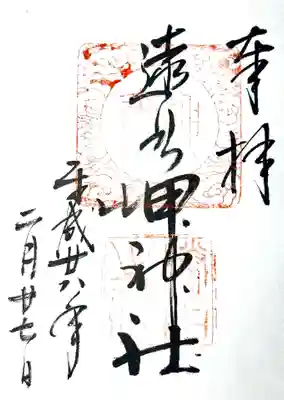 奉拝
遠見岬神社
平成廿八年
二月廿七日